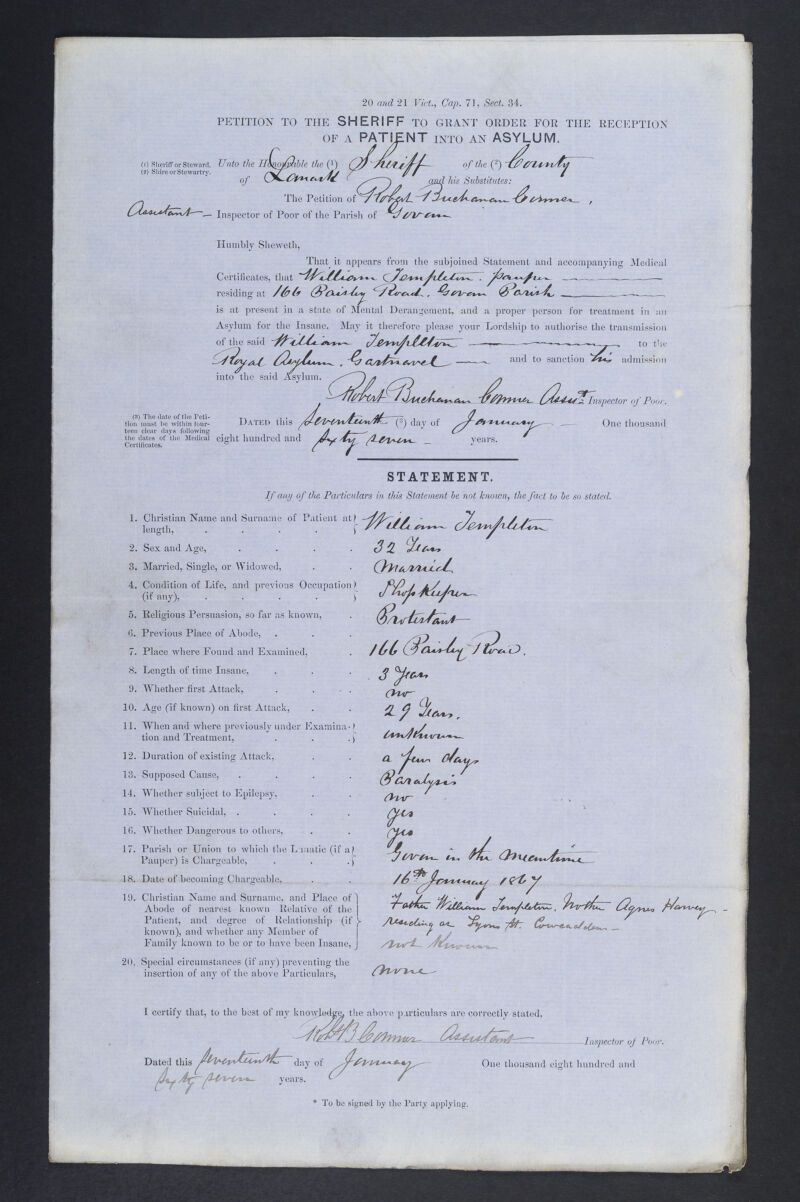 20 and 21 Vict., Cap. 71, Sect. 34.
PETITION TO THE SHERIFF TO GRANT ORDER FOR THE RECEPTION
OF A PATIENT INTO AN ASYLUM.
(1) Sheriff or Steward.
(2) Shire or Stewartry.
Unto the Honourable the (1) Sheriff of the (2) County
of Lanark and his Substitutes:
The Petition of Robert Buchanan Conner,
Assistant — Inspector of Poor of the Parish of Govan
Humbly Sheweth,
That it appears from the subjoined Statement and accompanying Medical
Certificates, that William Templeton. pauper
residing at 166 Paisley Road. Govan Parish
is at present in a state of Mental Derangement, and a proper person for treatment in an
Asylum for the Insane. May it therefore please your Lordship to authorise the transmission
of the said William Templeton to the
Royal Asylum. Gartnavel and to sanction his admission
into the said Asylum.
Robert Buchanan Conner Assist Inspector of Poor.
(3) The date of the Peti-
tion must be within four-
teen clear days following
the dates of the Medical
Certificates.
DATED this Seventeenth (3) day of January One thousand
eight hundred and Sixty seven years.
STATEMENT.
If any of the Particulars in this Statement be not known, the fact to be so stated.
1. Christian Name and Surname of Patient at
length, William Templeton
2. Sex and Age, 32 Years
3. Married, Single, or Widowed, Married
4. Condition of Life, and previous Occupation
(if any), Shopkeeper
5. Religious Persuasion, so far as known, Protestant
6. Previous Place of Abode,
7. Place where Found and Examined, 166 Paisley Road.
8. Length of time Insane, 3 Years
9. Whether first Attack, no
10. Age (if known) on first Attack, 29 Years.
11. When and where previously under Examina-
tion and Treatment, unknown
12. Duration of existing Attack, a few days
13. Supposed Cause, Paralysis
14. Whether subject to Epilepsy, no
15. Whether Suicidal, yes
16. Whether Dangerous to others, yes
17. Parish or Union to which the Lunatic (if a
Pauper) is Chargeable, Govan in the meantime
18. Date of becoming Chargeable, 16th January 1867
19. Christian Name and Surname, and Place of
Abode of nearest known Relative of the
Patient, and degree of Relationship (if
known), and whether any Member of
Family known to be or to have been Insane,
Father William Templeton. Mother Agnes Harvey —
residing at Lyons St. Cowcaddens —
not known
20. Special circumstances (if any) preventing the
insertion of any of the above Particulars, none
I certify that, to the best of my knowledge, the above particulars are correctly stated,
Robt B Conner Assistant Inspector of Poor.
Dated this seventeenth day of January One thousand eight hundred and
sixty seven years.
* To be signed by the Party applying.